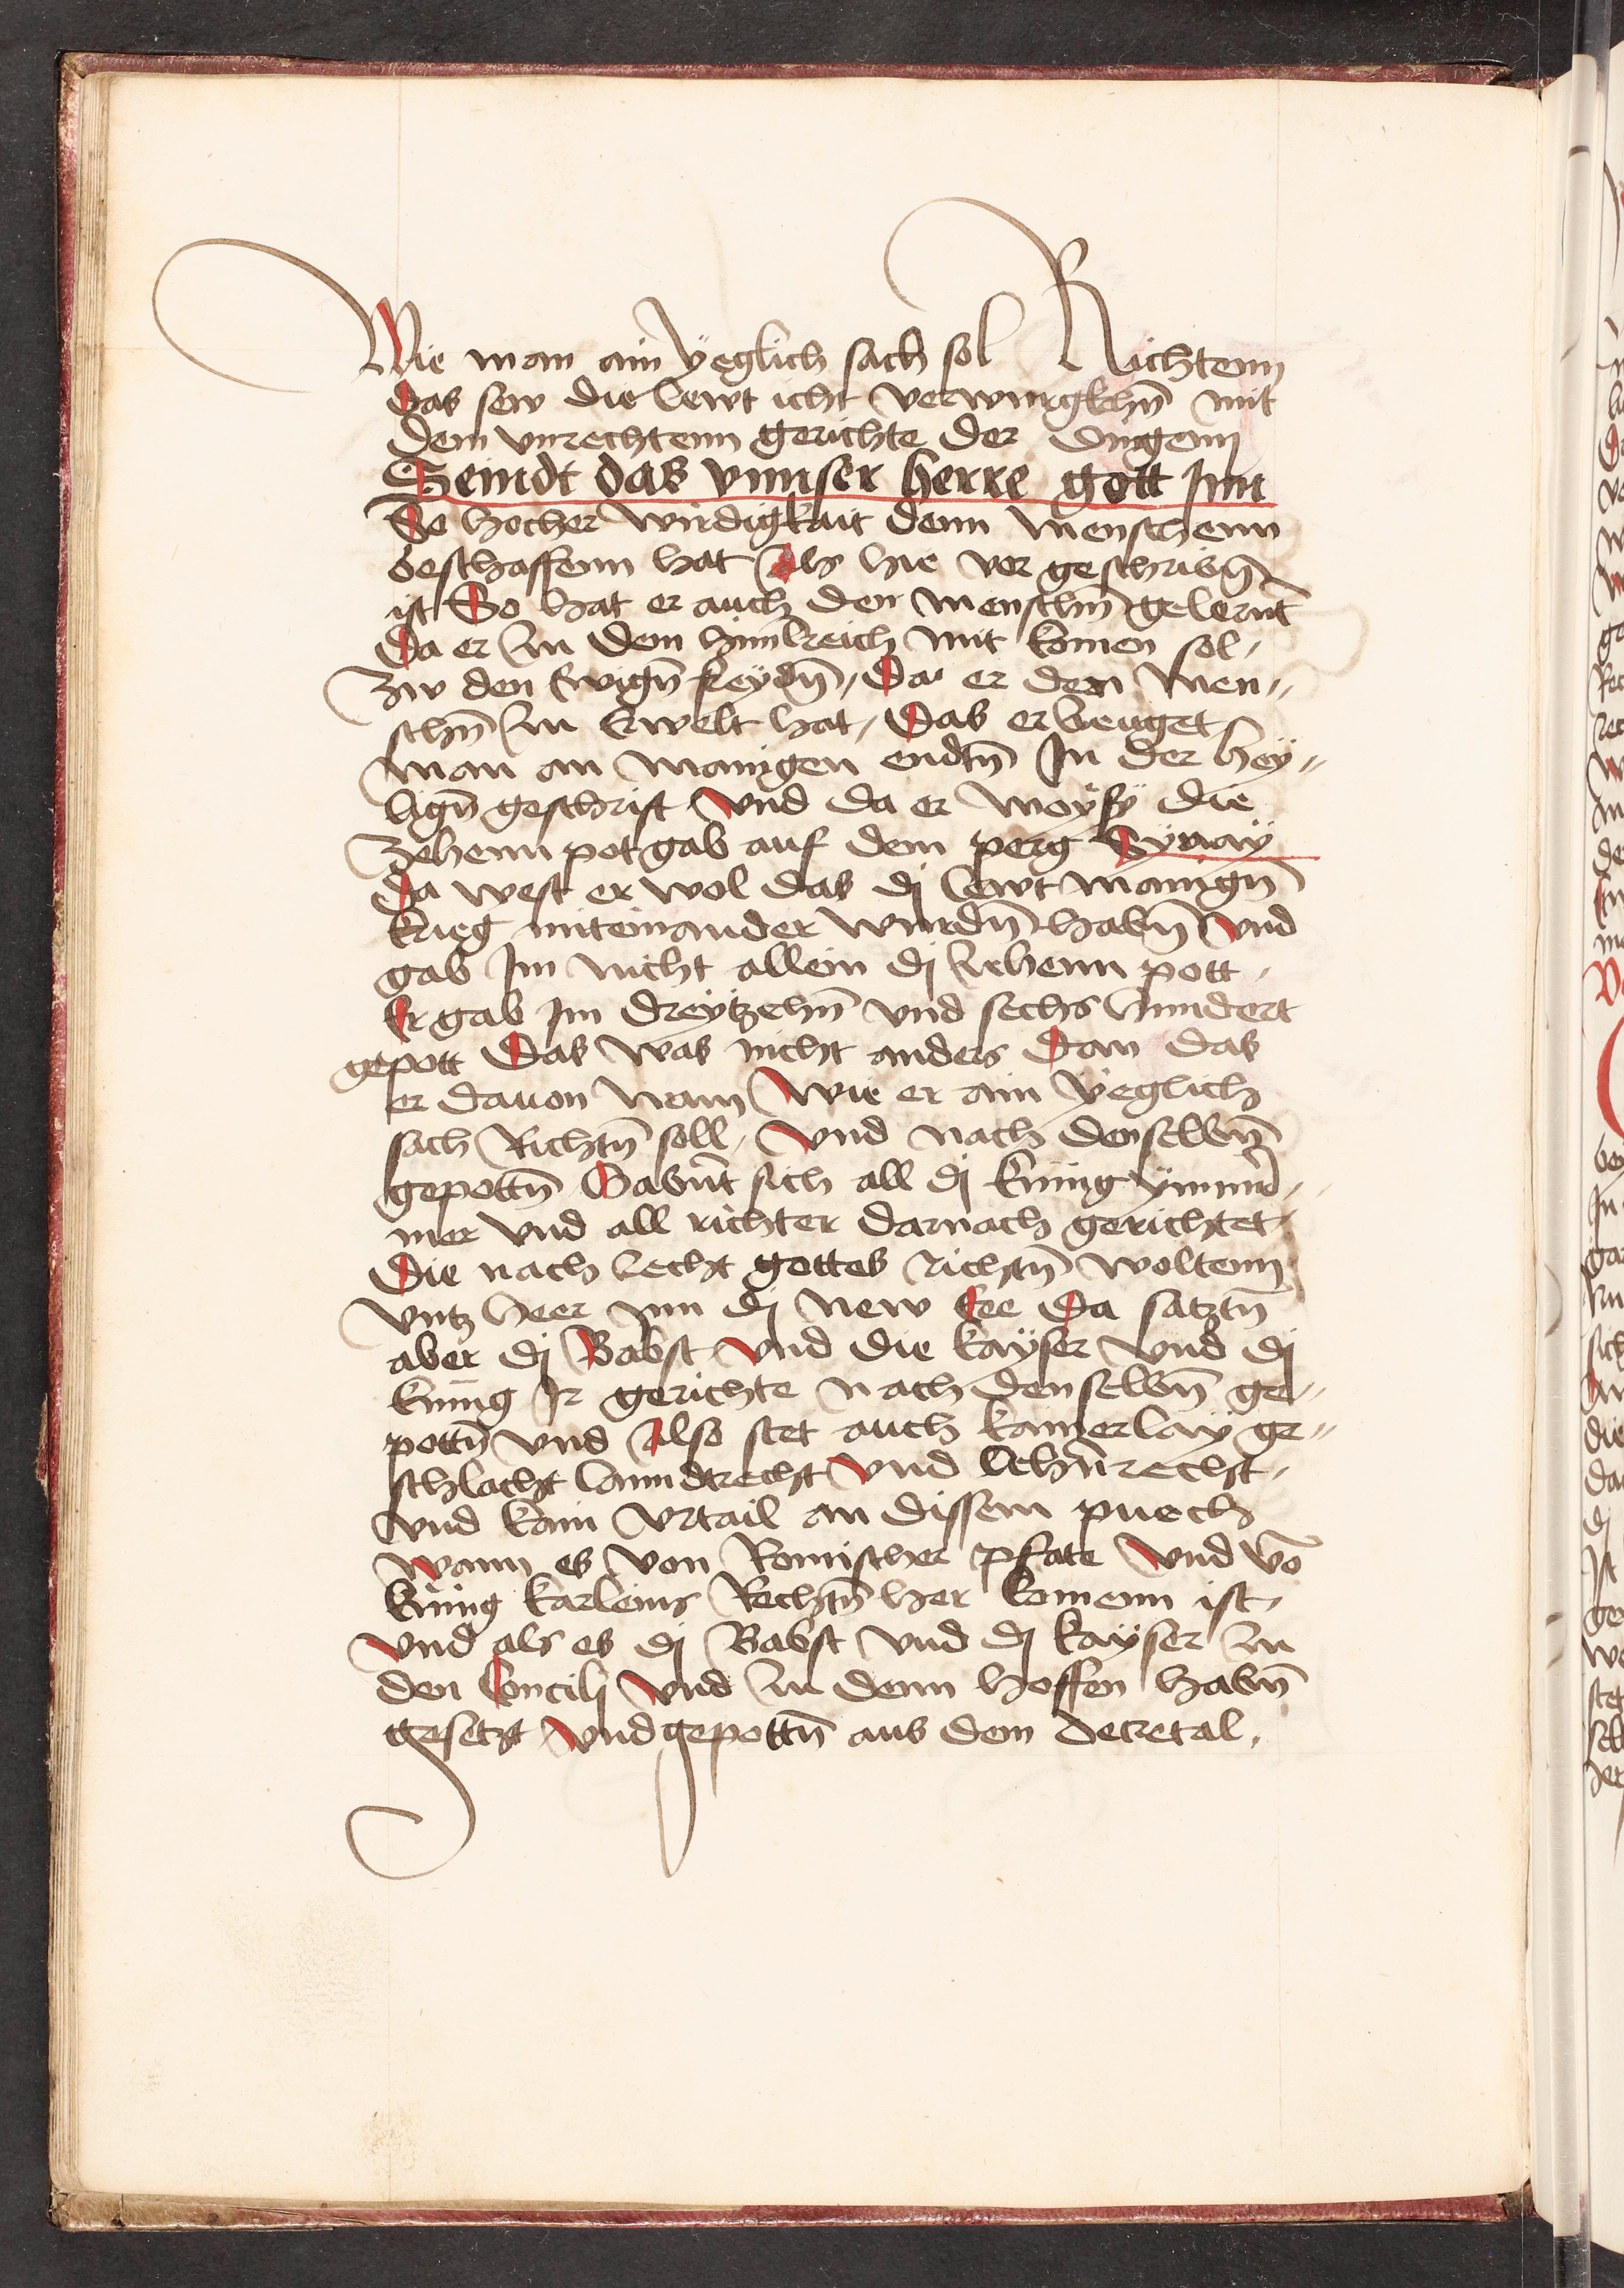 Wie man ain yeglich sach sol Richtenn
das sew die lewt icht verwurgkhn̄ mit
dem vnrechtenn gerichte der dingenn
Seindt das vnnser herre gott Inn
So hocher wirdigkait denn menschenn
beschaffenn hat Als hie vor geschribn̄
ist So hat er auch den menschn̄ gelernt
Da er in dem himlreich mit komen sol,
Zw den Ewign̄ freydn̄, Da er den Men„
schn̄ zu Erwelt hat, Das erzeuget
man an manigen endtn̄ In der hey„
lign̄ geschrift Vnd da er Moÿsÿ die
Zehenn pot gab auf dem perg Sÿnaÿ
Da west er wol das dj lewt manign̄
krieg miteinander wurdn̄ habn̄ Vnd
gab Im nicht allein dj zehenn pott,
Er gab Im dreytzehn̄ vnd sechs hundert
gepott Das was nicht anders Dan das
er dauon nam Wie er ain ÿeglich
sach Richtn̄ soll, Vnd nach denselbn̄
gepottn̄ Habn̄t sich all dj kunig ÿmm„
mer vnd all richter darnach gerichtet,
Die nach recht gottes richtn̄ woltenn
vntz heer jnn dj new Eee Da satztn̄
aber dj Babst Vnd die kaÿser vnd dj
kunig Ir gerichte nach denselbn̄ ge„
pottn̄ vnd Also stet auch kainerlaÿ ge„
schlacht lanndtrecht Vnd lehn̄recht,
vnd kain vrtail an dissem puech
Wann es von Romischer pfate Vnd vō
kunig karleins Rechtn̄ her komenn ist,
Vnd als es dj Babst vnd dj kaÿser zu
den Concilj Vnd zu denn hoffen habn̄
gesetzt Vnd gepottn̄ aus dem decretal.